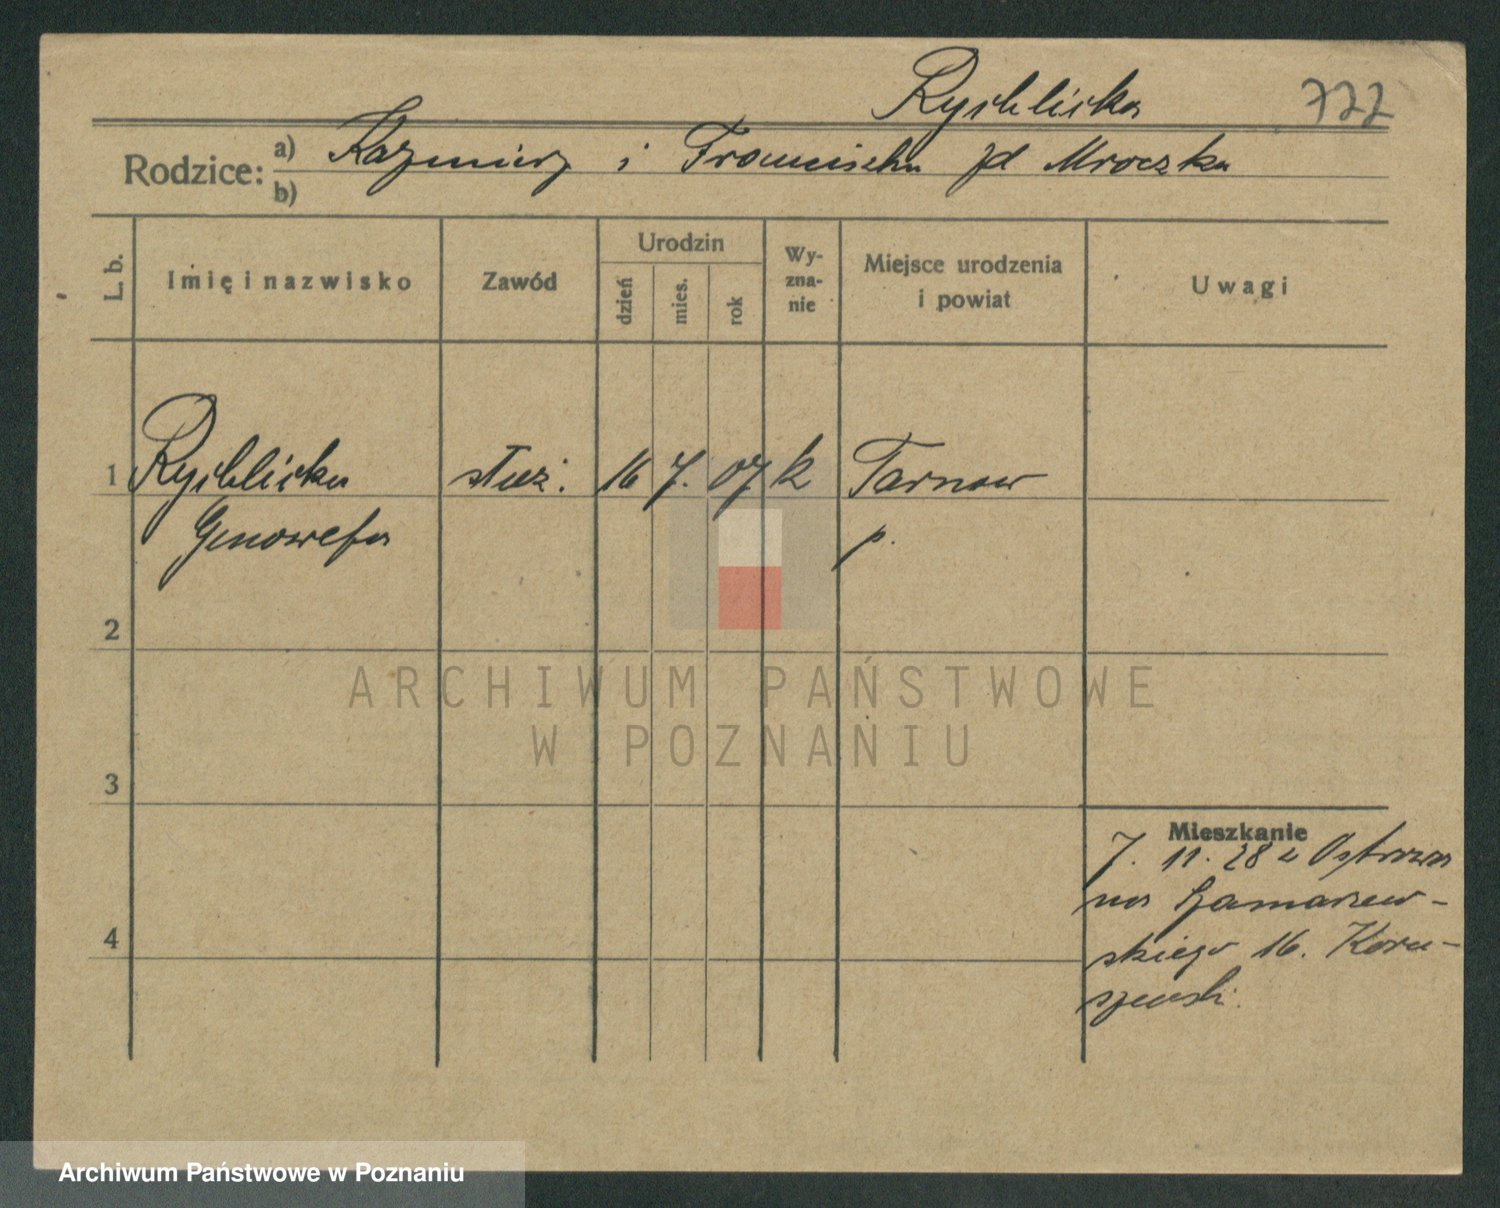 Rychlicka 722
Rodzice: a) Kazmierz i Franciszka zd Mroczka
b)
L. b. Imię i nazwisko Zawód Urodzin dzień mies. rok Wy-zna-nie Miejsce urodzenia i powiat Uwagi
1 Rychlicka służ. 16 7. 07 k Tarnow
Genowefa p.
2
3
Mieszkanie
7. 11. 28 z Ostrowa
na Zamarzew-
4 skiego 16.
ARCHIWUM PAŃSTWOWE
W POZNANIU
Archiwum Państwowe w Poznaniu